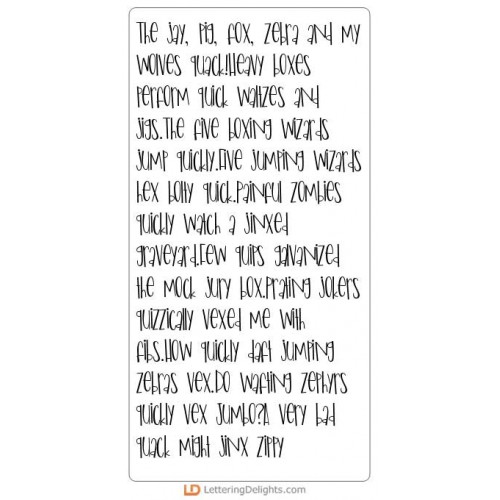 The jay, pig, fox, zebra and my
wolves quack!Heavy boxes
perform quick waltzes and
jigs.The five boxing wizards
jump quickly.Five jumping wizards
hex bolty quick.Painful zombies
quickly watch a jinxed
graveyard.Few quips galvanized
the mock jury box.Prating jokers
quizzically vexed me with
fibs.How quickly daft jumping
zebras vex.Do wafting zephyrs
quickly vex Jumbo?A very bad
quack might jinx zippy
LD LetteringDelights.com